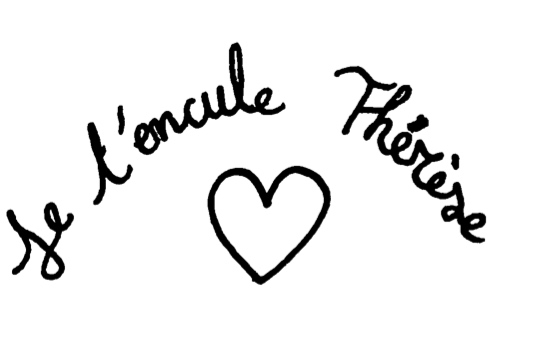 Je t'encule Thérèse